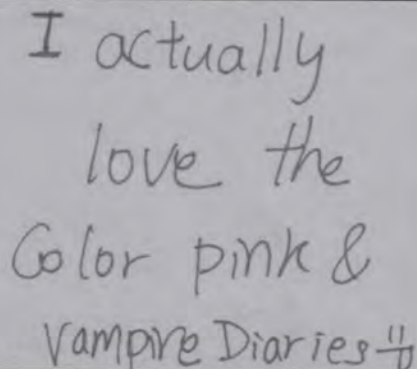 I actually
love the
Color pink &
Vampire Diaries